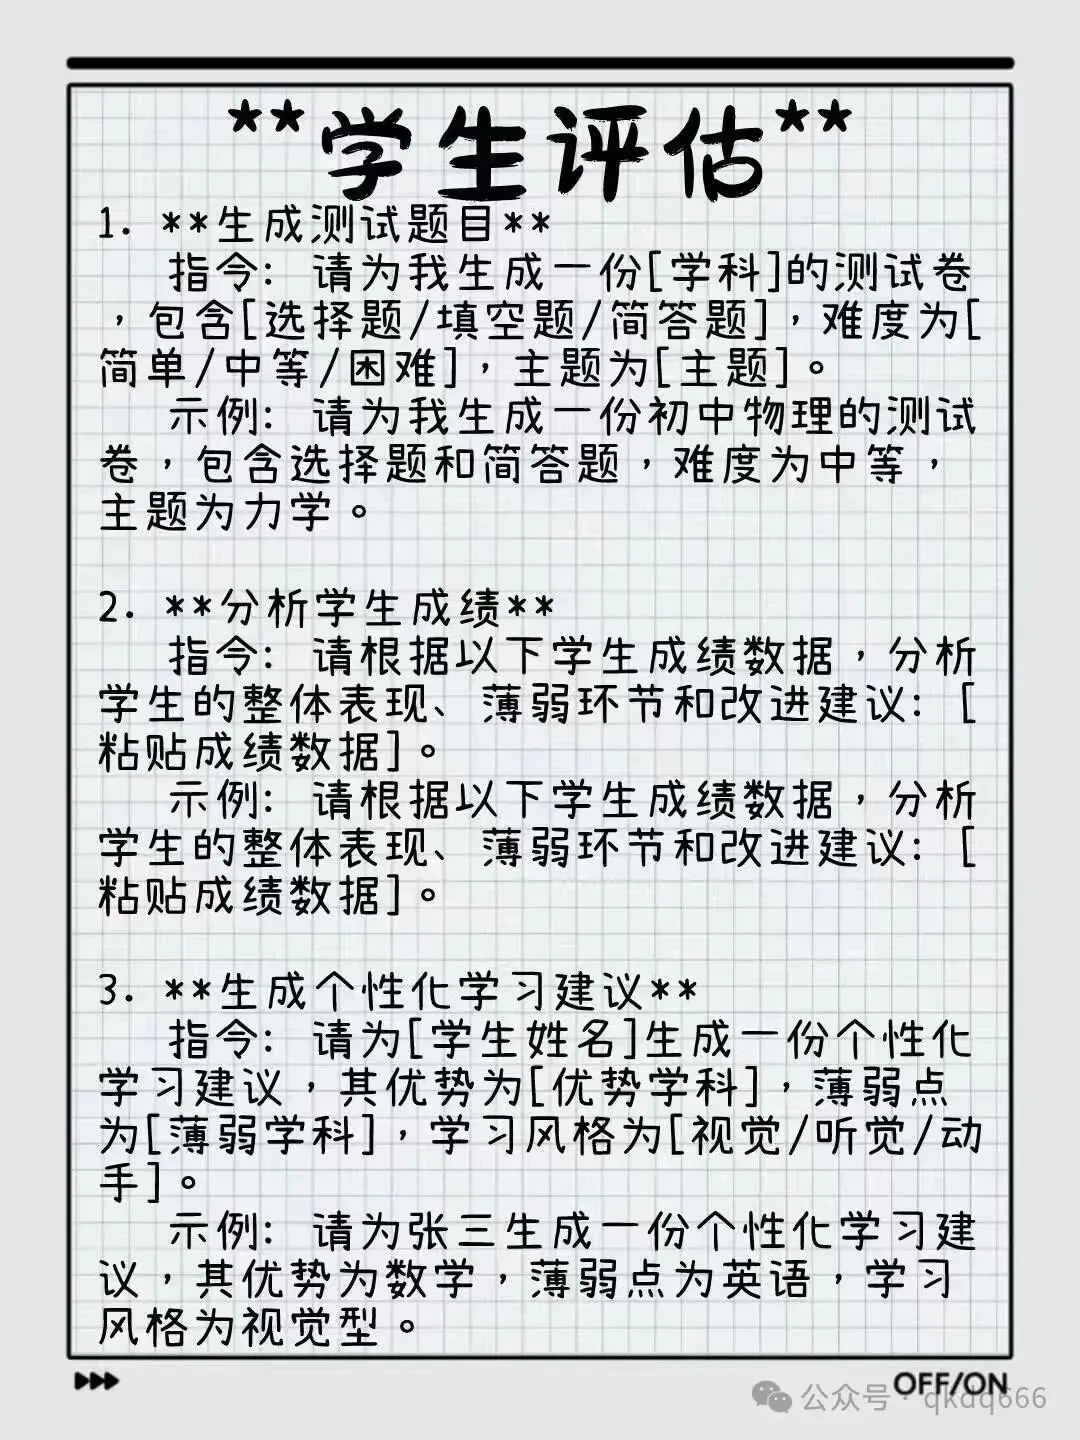 **学生评估**
1. **生成测试题目**
指令: 请为我生成一份[学科]的测试卷
，包含[选择题/填空题/简答题]，难度为[
简单/中等/困难]，主题为[主题]。
示例: 请为我生成一份初中物理的测试
卷，包含选择题和简答题，难度为中等，
主题为力学。
2. **分析学生成绩**
指令: 请根据以下学生成绩数据，分析
学生的整体表现、薄弱环节和改进建议: [
粘贴成绩数据]。
示例: 请根据以下学生成绩数据，分析
学生的整体表现、薄弱环节和改进建议: [
粘贴成绩数据]。
3. **生成个性化学习建议**
指令: 请为[学生姓名]生成一份个性化
学习建议，其优势为[优势学科]，薄弱点
为[薄弱学科]，学习风格为[视觉/听觉/动
手]。
示例: 请为张三生成一份个性化学习建
议，其优势为数学，薄弱点为英语，学习
风格为视觉型。
OFF/ON
公众号 · qkdq666